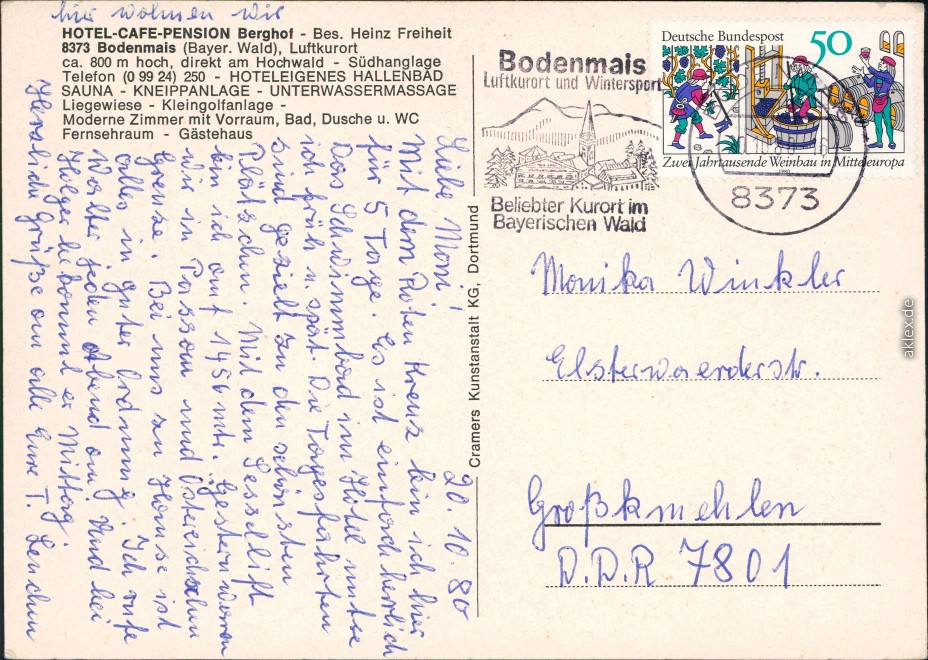 hier wohnen wir
HOTEL-CAFE-PENSION Berghof - Bes. Heinz Freiheit
8373 Bodenmais (Bayer. Wald), Luftkurort
ca. 800 m hoch, direkt am Hochwald - Südhanglage
Telefon (0 99 24) 250 - HOTELEIGENES HALLENBAD
SAUNA - KNEIPPANLAGE - UNTERWASSERMASSAGE
Liegewiese - Kleingolfanlage -
Moderne Zimmer mit Vorraum, Bad, Dusche u. WC
Fernsehraum - Gästehaus
20.10.80
Liebe Moni!
Mit dem Roten Kreuz bin ich hier
für 5 Tage. Es ist einfach herrlich
Das Schwimmbad im Hotel nutze
ich früh u. spät. Die Tagesfahrten
sind gezielt zu den schönsten
Plätzchen. Mit dem Sessellift
bin ich auf 1456 mtr. Gestern waren
wir in Passau und Östereichschen
Grenze. Bei uns zu Hause ist
alles in guter Ordnung. Ich rufe
Walter jeden Abend an. Und bei
Hilger bekommt er Mittag.
Herzliche Grüße an alle Eure T. Lenchen
Cramers Kunstanstalt KG, Dortmund
Bodenmais
Luftkurort und Wintersport
Beliebter Kurort im
Bayerischen Wald
Deutsche Bundespost 50
Zwei Jahrtausende Weinbau in Mitteleuropa
1980
8373
Monika Winkler
Elsterwaerderstr.
Großkmehlen
D.D.R 7801
aklex.de